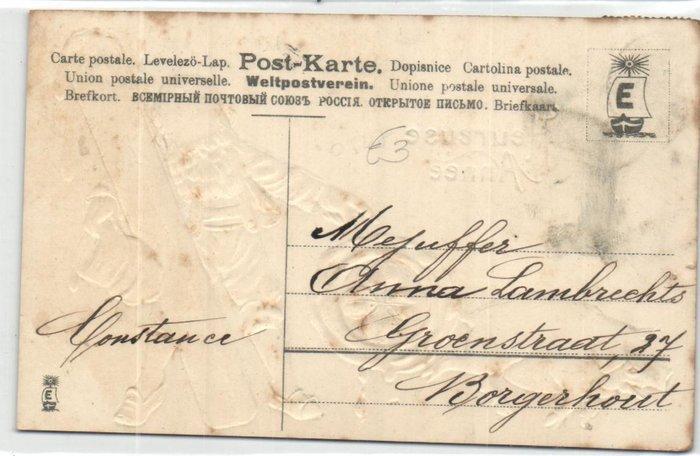 Carte postale. Levelezö-Lap. Post-Karte. Dopisnice Cartolina postale.
Union postale universelle. Weltpostverein. Unione postale universale.
Brefkort. ВСЕМІРНЫЙ ПОЧТОВЫЙ СОЮЗЪ РОССІЯ. ОТКРЫТОЕ ПИСЬМО. Briefkaart.
E
eureuse
Année
£3
Mejuffer
Anna Lambrechts
Constance
Groenstraat, 37
Borgerhout
E